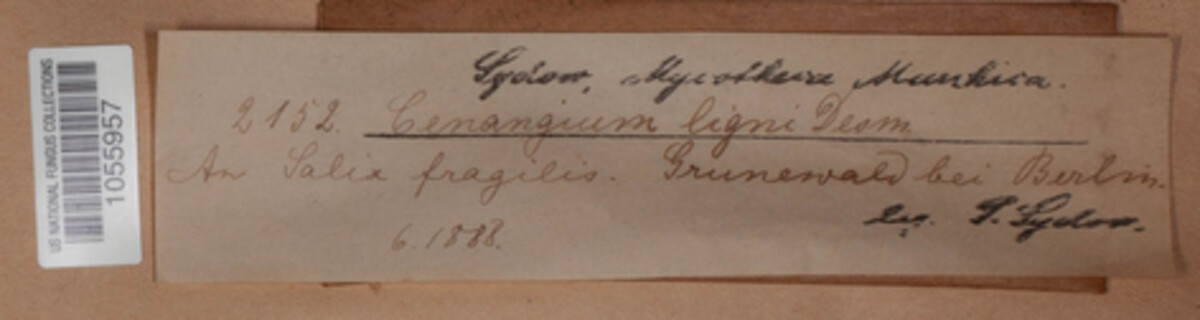 US NATIONAL FUNGUS COLLECTIONS
1055957
Sydow, Mycotheca Marchica.
2152. Cenangium ligni Desm.
An Salix fragilis. Grunewald bei Berlin.
6.1888.
leg. P. Sydow.